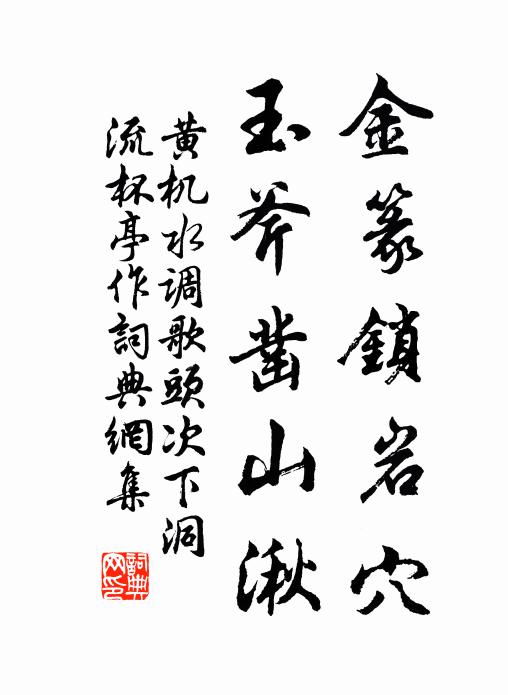 金篆鎖岩穴
玉斧凿山湫
黄机水调歌頭次下洞
流杯亭作詞典網集
詞典网印